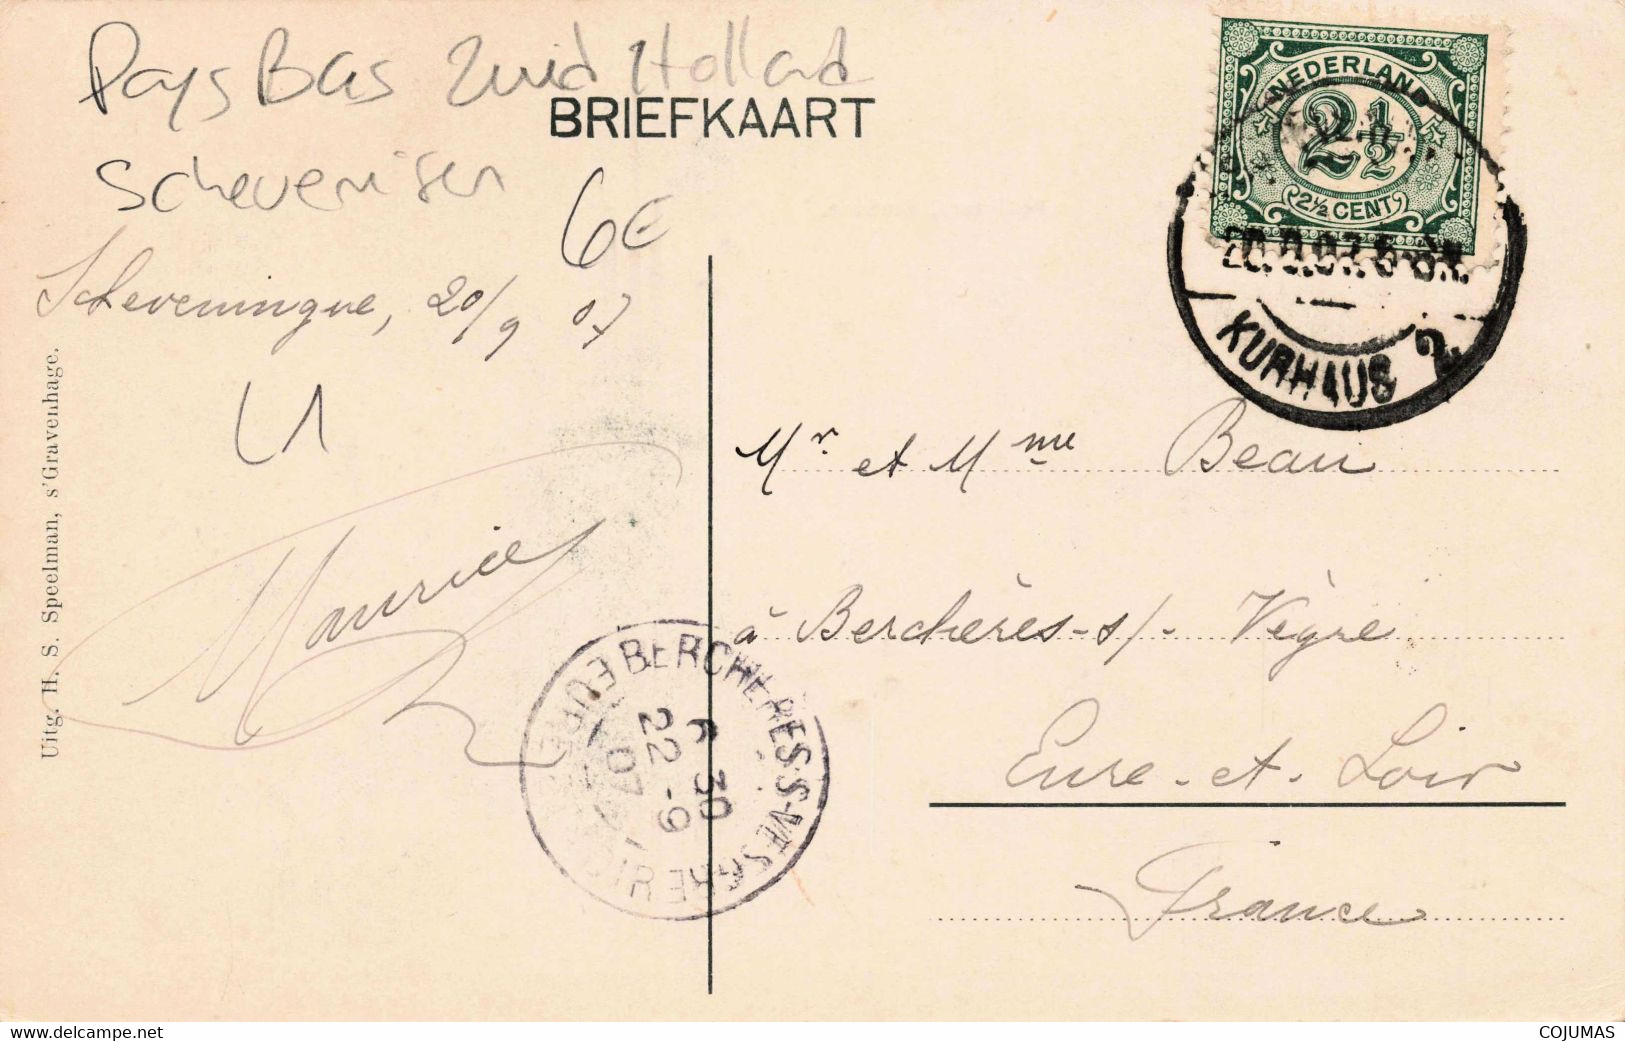 Pays Bas Zuid Holland
BRIEFKAART
Schevenisen
6€
Scheveningue, 20/9 07
L1
Maurice
Uitg. H. S. Speelman, s'Gravenhage.
NEDERLAND
2½
2½ CENT
KURHAUS 2
Mr et Mme Beau
à Berchères-s/- Vègre
Eure-et-Loir
France
BERCHERES-S-VESGRE
6 30
22 -9
07
EURE
LOIR
www.delcampe.net
COJUMAS